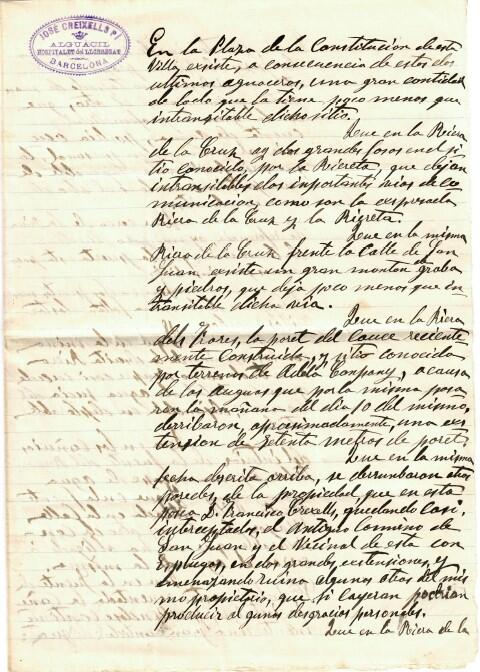 JOSÉ CREIXELLS P.
ALGUACIL
HOSPITALET del LLOBREGAT
BARCELONA
En la Plaza de la Constitucion de esta
Villa, existe, a consecuencia de estos dos
ultimos aguaceros, una gran cantidad
de lodo que la tiene poco menos que
intransitable dicho sitio.
Que en la Riera
de la Cruz ay dos grandes fosos en el si
tio conocido, por la Riereta, que dejan
intransitables dos importantes vias de co
municacion, como son la expresada
Riera de la Cruz y la Riereta.
Que en la misma
Riera de la Cruz frente la Calle de San
Juan, existe un gran monton de graba
y piedras, que deja poco menos que in
transitable dicha via.
Que en la Riera
dels Frares, la poret del Cauce reciente
mente construida, y sitio conocido
por terrenos de Company, a causa
de las Auguas que por la misma pasa
ron la mañana del dia 10 del mismo,
derribaron, aproximadamente, una ex
tension de setenta metros de poret.
Que en la misma
fecha descrita arriba, se derrunbaron otras
poredes, de la propiedad que en esta
posea D. Francisco quedando Casi,
interceptados, el Antiguo Comeno de
San Juan y el Vecinal de esta con
Esplugas, en dos grandes extensiones, y
amenazando ruina algunas otras del mis
mo propietario, que si cayeran podrian
producir algunas desgracias personales.
Que en la Riera de la